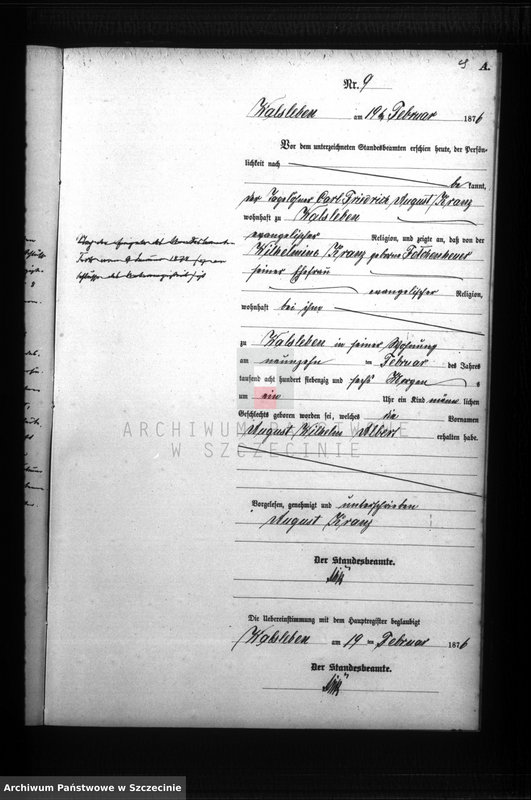 A.
Nr. 9
Walsleben am 19ten Februar 1876
Vor dem unterzeichneten Standesbeamten erschien heute, der Persön-
lichkeit nach
be kannt,
der Tagelöhner Carl Friedrich August Kranz
wohnhaft zu Walsleben
evangelischer Religion, und zeigte an, daß von der
Wilhelmine Kranz geborne
seiner Ehefrau
evangelischer Religion,
wohnhaft bei ihm
zu Walsleben in seiner Wohnung
am neunzehn ten Februar des Jahres
tausend acht hundert siebenzig und sechs Morgens
um ein Uhr ein Kind männ lichen
Geschlechts geboren worden sei, welches die Vornamen
August Wilhelm Albert erhalten habe.
Vorgelesen, genehmigt und unterschrieben
August Kranz
Der Standesbeamte.
Die Uebereinstimmung mit dem Hauptregister beglaubigt
Walsleben am 19 ten Februar 1876
Der Standesbeamte.
ARCHIWUM PAŃSTWOWE
W SZCZECINIE
Archiwum Państwowe w Szczecinie